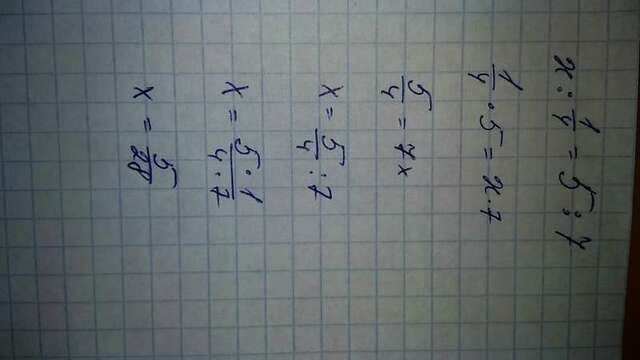 x : 1/4 = 5 : 7
1/4 · 5 = x · 7
5/4 = 7x
x = 5/4 : 7
x = 5·1/4·7
x = 5/28